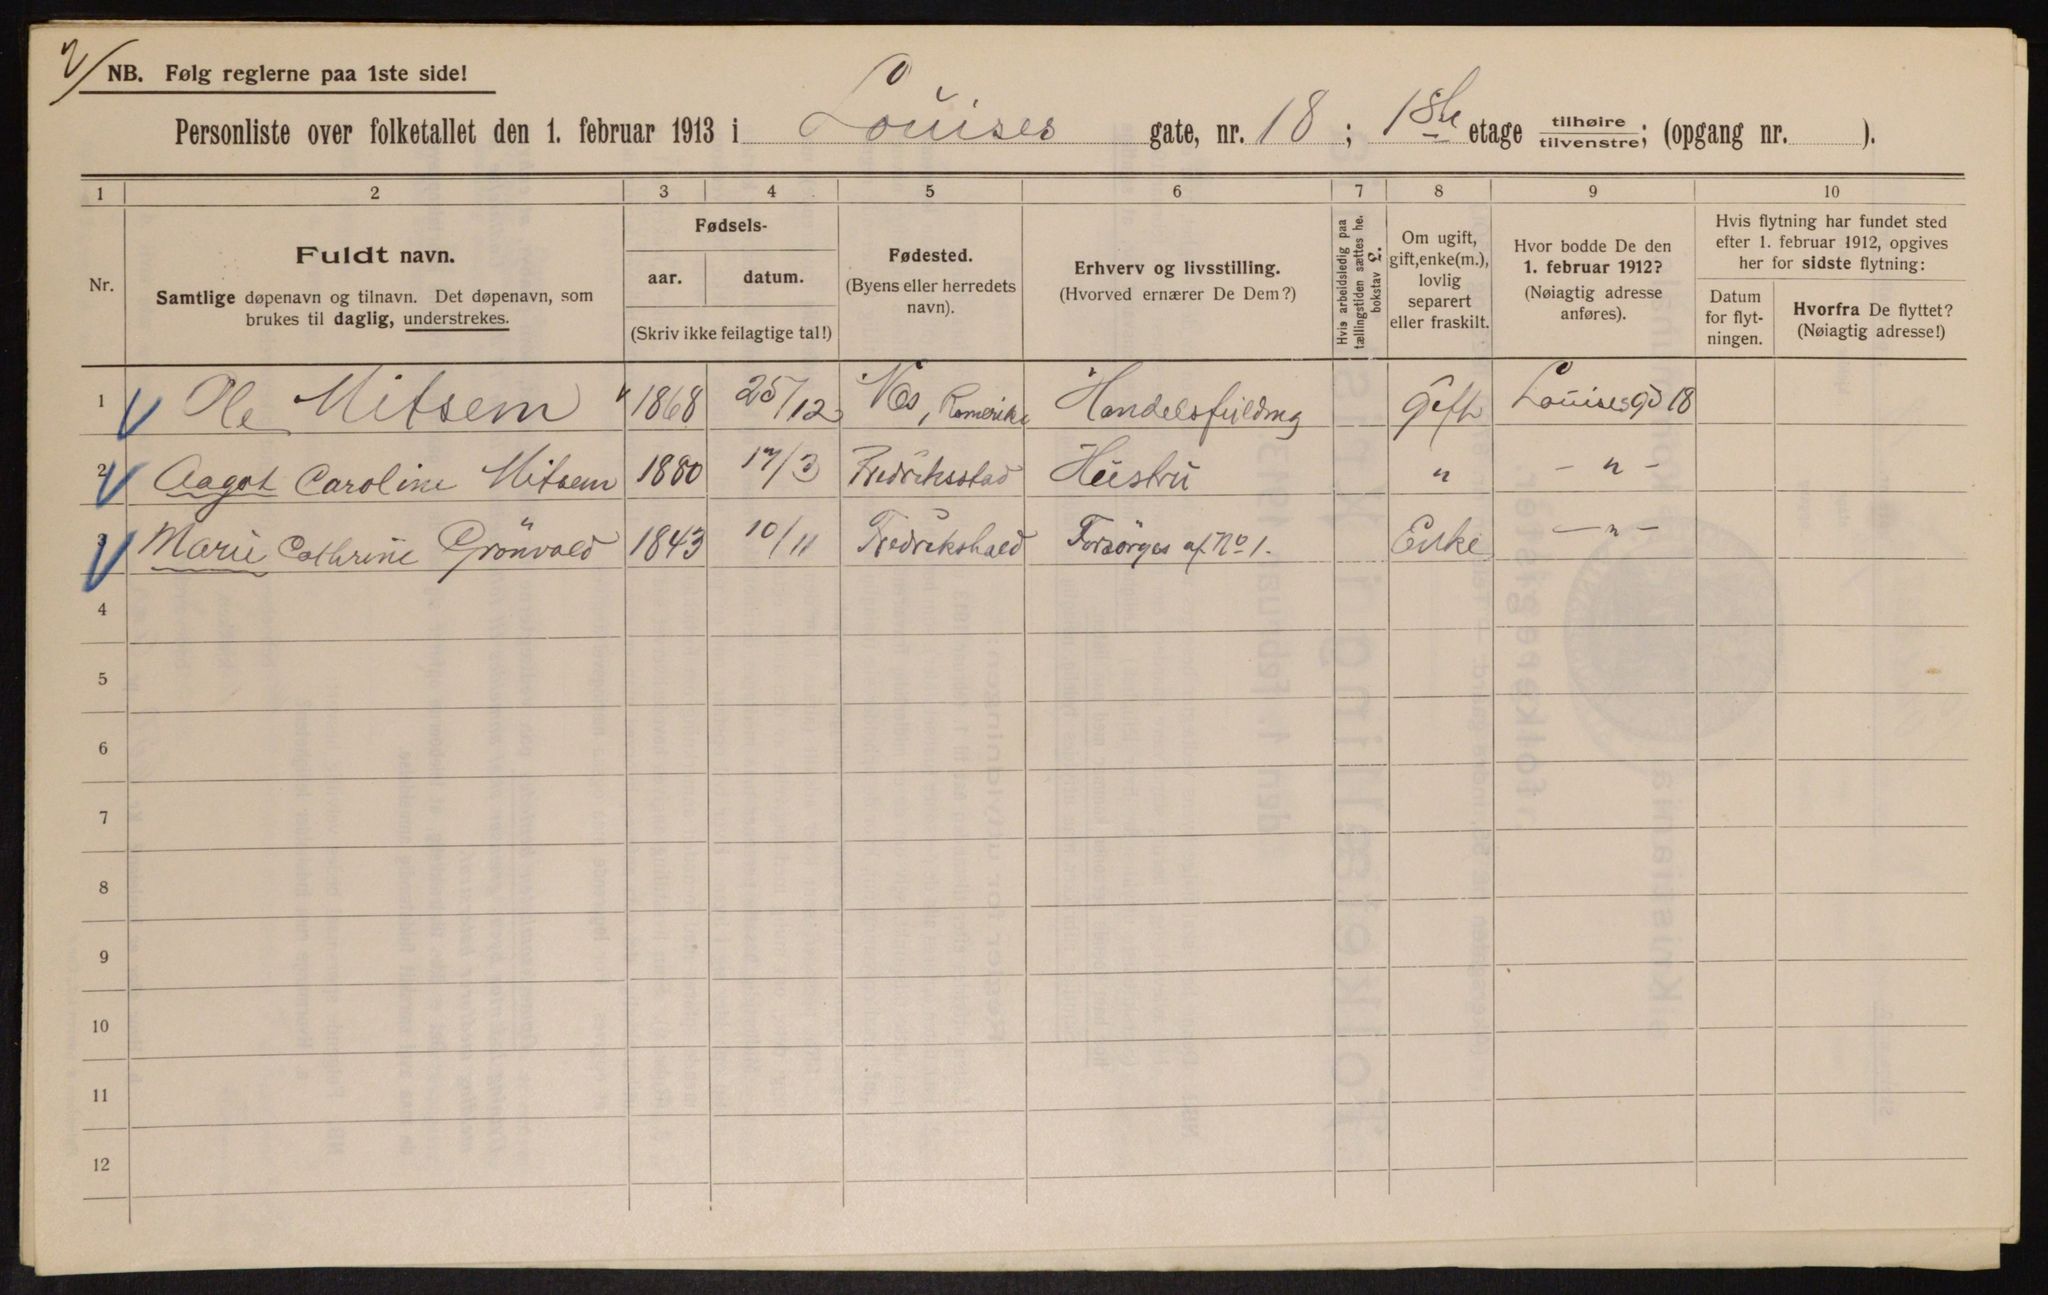 2/ NB. Følg reglerne paa 1ste side!
Personliste over folketallet den 1. februar 1913 i Louises gate, nr. 18; 1ste etage tilhøire / tilvenstre; (opgang nr. ).
1 2 3 4 5 6 7 8 9 10
Nr.
Fuldt navn.
Samtlige døpenavn og tilnavn. Det døpenavn, som
brukes til daglig, understrekes.
Fødsels-
aar. datum.
(Skriv ikke feilagtige tal!)
Fødested.
(Byens eller herredets
navn).
Erhverv og livsstilling.
(Hvorved ernærer De Dem?)
Hvis arbeidsledig paa
tællingstiden sættes he.
bokstav L.
Om ugift,
gift, enke(m.),
lovlig
separert
eller fraskilt.
Hvor bodde De den
1. februar 1912?
(Nøiagtig adresse
anføres).
Hvis flytning har fundet sted
efter 1. februar 1912, opgives
her for sidste flytning:
Datum
for flyt-
ningen.
Hvorfra De flyttet?
(Nøiagtig adresse!)
1 Ole Mitsem 1868 25/12 Nes, Romerike Handelsfuldmg gift Louisesgd 18
2 Aagot Caroline Mitsem 1880 17/3 Fredriksstad Hustru " - " -
3 Marie Cathrine Grönvold 1843 10/11 Fredrikshald Forsörges af No 1. Enke - " -
4
5
6
7
8
9
10
11
12